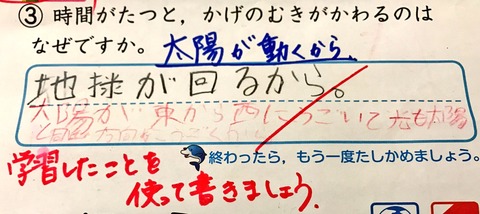 ③ 時間がたつと，かげのむきがかわるのは
なぜですか。
太陽が動くから。
地球が回るから。
太陽が東から西にうごいて光も太陽
終わったら，もう一度たしかめましょう。
学習したことを
使って書きましょう。